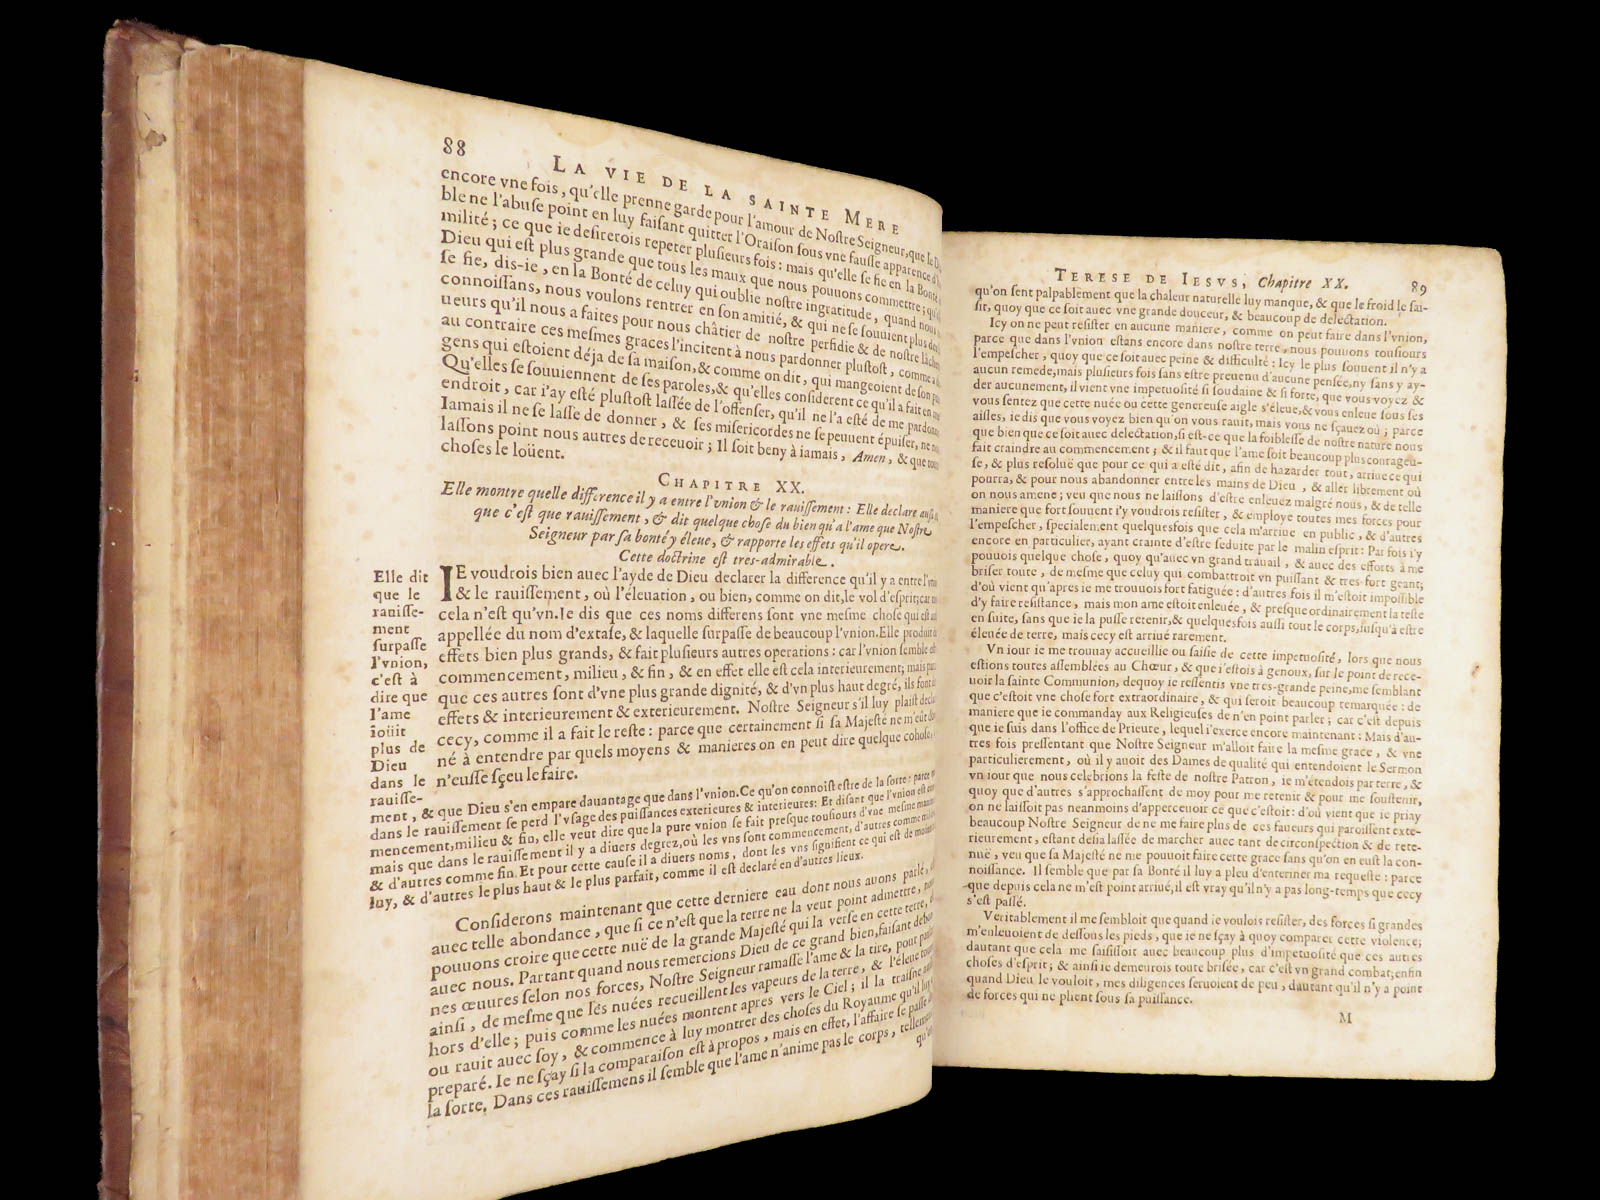 88 LA VIE DE LA SAINTE MERE
encore vne fois, qu'elle prenne garde pour l'amour de Noſtre Seigneur, que le
ble ne l'abuſe point en luy faiſant quitter l'Oraiſon ſous vne fauſſe apparence
milité; ce que ie deſirerois repeter pluſieurs fois: mais qu'elle ſe fie en la Bonté
Dieu qui eſt plus grande que tous les maux que nous pouuons commettre;
ſe fie, dis-ie, en la Bonté de celuy qui oublie noſtre ingratitude, quand nous
connoiſſans, nous voulons rentrer en ſon amitié, & qui ne ſe ſouuient plus
ueurs qu'il nous a faites pour nous châtier de noſtre perfidie & de noſtre
au contraire ces meſmes graces l'incitent à nous pardonner pluſtoſt, comme
gens qui eſtoient déja de ſa maiſon, & comme on dit, qui mangeoient de ſon
Qu'elles ſe ſouuiennent de ſes paroles, & qu'elles conſiderent ce qu'il a fait en
endroit, car i'ay eſté pluſtoſt laſſée de l'offenſer, qu'il ne l'a eſté de me
Iamais il ne ſe laſſe de donner, & ſes miſericordes ne ſe peuuent épuiſer, ne
laſſons point nous autres de receuoir; Il ſoit beny à iamais, Amen, & que
choſes le loüent.
CHAPITRE XX.
Elle montre quelle difference il y a entre l'vnion & le rauiſſement: Elle declare auſſi
que c'eſt que rauiſſement, & dit quelque choſe du bien qu'a l'ame que Noſtre
Seigneur par ſa bonté y éleue, & rapporte les effets qu'il opere.
Cette doctrine eſt tres-admirable.
IE voudrois bien auec l'ayde de Dieu declarer la difference qu'il y a entre
& le rauiſſement, où l'éleuation, ou bien, comme on dit, le vol d'eſprit; car
cela n'eſt qu'vn. Ie dis que ces noms differens ſont vne meſme choſe qui eſt
appellée du nom d'extaſe, & laquelle ſurpaſſe de beaucoup l'vnion. Elle produit
effets bien plus grands, & fait pluſieurs autres operations: car l'vnion ſemble
commencement, milieu, & fin, & en effet elle eſt cela interieurement; mais
que ces autres ſont d'vne plus grande dignité, & d'vn plus haut degré, ils font
effets & interieurement & exterieurement. Noſtre Seigneur s'il luy plaiſt
cecy, comme il a fait le reſte: parce que certainement ſi ſa Majeſté ne m'eût
né à entendre par quels moyens & manieres on en peut dire quelque cohoſe,
n'euſſe ſçeu le faire.
Elle dit
que le
rauiſſe-
ment
ſurpaſſe
l'vnion,
c'eſt à
dire que
l'ame
ioüit
plus de
Dieu
dans le
rauiſſe-
ment, & que Dieu s'en empare dauantage que dans l'vnion. Ce qu'on connoiſt eſtre de la ſorte: parce
dans le rauiſſement ſe perd l'vſage des puiſſances exterieures & interieures: Et diſant que l'vnion eſt
mencement, milieu & fin, elle veut dire que la pure vnion ſe fait preſque touſiours d'vne meſme
mais que dans le rauiſſement il y a diuers degrez, où les vns ſont commencement, d'autres comme
& d'autres comme fin. Et pour cette cauſe il a diuers noms, dont les vns ſignifient ce qui eſt de
luy, & d'autres le plus haut & le plus parfait, comme il eſt declaré en d'autres lieux.
Conſiderons maintenant que cette derniere eau dont nous auons parlé,
auec telle abondance, que ſi ce n'eſt que la terre ne la veut point admettre,
pouuons croire que cette nuë de la grande Majeſté qui la verſe en cette terre,
auec nous. Partant quand nous remercions Dieu de ce grand bien, faiſant
nes œuures ſelon nos forces, Noſtre Seigneur ramaſſe l'ame & la tire, pour
ainſi, de meſme que les nuées recueillent les vapeurs de la terre, & l'éleue
hors d'elle; puis comme les nuées montent apres vers le Ciel; il la traiſne
ou rauit auec ſoy, & commence à luy montrer des choſes du Royaume qu'il
preparé. Ie ne ſçay ſi la comparaiſon eſt à propos, mais en effet, l'affaire ſe paſſe
la ſorte. Dans ces rauiſſemens il ſemble que l'ame n'anime pas le corps,
TERESE DE IESVS, Chapitre XX. 89
qu'on ſent palpablement que la chaleur naturelle luy manque, & que le froid le ſai-
ſit, quoy que ce ſoit auec vne grande douceur, & beaucoup de delectation.
Icy on ne peut reſiſter en aucune maniere, comme on peut faire dans l'vnion,
parce que dans l'vnion eſtans encore dans noſtre terre, nous pouuons touſiours
l'empeſcher, quoy que ce ſoit auec peine & difficulté: Icy le plus ſouuent il n'y a
aucun remede, mais pluſieurs fois ſans eſtre preuenu d'aucune penſée, ny ſans y ay-
der aucunement, il vient vne impetuoſité ſi ſoudaine & ſi forte, que vous voyez &
vous ſentez que cette nuée ou cette genereuſe aigle s'éleue, & vous enleue ſous ſes
aiſles, ie dis que vous voyez bien qu'on vous rauit, mais vous ne ſçauez où; parce
que bien que ce ſoit auec delectation, ſi eſt-ce que la foibleſſe de noſtre nature nous
fait craindre au commencement; & il faut que l'ame ſoit beaucoup plus courageu-
ſe, & plus reſoluë que pour ce qui a eſté dit, afin de hazarder tout, arriue ce qui
pourra, & pour nous abandonner entre les mains de Dieu, & aller librement où
on nous amene; veu que nous ne laiſſons d'eſtre enleuez malgré nous, & de telle
maniere que fort ſouuent i'y voudrois reſiſter, & employe toutes mes forces pour
l'empeſcher, ſpecialement quelquesfois que cela m'arriue en public, & d'autres
encore en particulier, ayant crainte d'eſtre ſeduite par le malin eſprit: Par fois i'y
pouuois quelque choſe, quoy qu'auec vn grand trauail, & auec des efforts à me
briſer toute, de meſme que celuy qui combattroit vn puiſſant & tres-fort geant;
d'où vient qu'apres ie me trouuois fort fatiguée: d'autres fois il m'eſtoit impoſſible
d'y faire reſiſtance, mais mon ame eſtoit enleuée, & preſque ordinairement la teſte
en ſuite, ſans que ie la puſſe retenir, & quelquesfois auſſi tout le corps, iuſqu'à eſtre
éleuée de terre, mais cecy eſt arriué rarement.
Vn iour ie me trouuay accueillie ou ſaiſie de cette impetuoſité, lors que nous
eſtions toutes aſſemblées au Chœur, & que i'eſtois à genoux, ſur le point de rece-
uoir la ſainte Communion, dequoy ie reſſentis vne tres-grande peine, me ſemblant
que c'eſtoit vne choſe fort extraordinaire, & qui ſeroit beaucoup remarquée: de
maniere que ie commanday aux Religieuſes de n'en point parler; car c'eſt depuis
que ie ſuis dans l'office de Prieure, lequel i'exerce encore maintenant: Mais d'au-
tres fois preſſentant que Noſtre Seigneur m'alloit faire la meſme grace, & vne
particulierement, où il y auoit des Dames de qualité qui entendoient le Sermon
vn iour que nous celebrions la feſte de noſtre Patron, ie m'étendois par terre, &
quoy que d'autres s'approchaſſent de moy pour me retenir & pour me ſouſtenir,
on ne laiſſoit pas neanmoins d'apperceuoir ce que c'eſtoit: d'où vient que ie priay
beaucoup Noſtre Seigneur de ne me faire plus de ces faueurs qui paroiſſent exte-
rieurement, eſtant deſia laſſée de marcher auec tant de circonſpection & de rete-
nuë, veu que ſa Majeſté ne me pouuoit faire cette grace ſans qu'on en euſt la con-
noiſſance. Il ſemble que par ſa Bonté il luy a pleu d'enteriner ma requeſte: parce
que depuis cela ne m'eſt point arriué, il eſt vray qu'il n'y a pas long-temps que cecy
s'eſt paſſé.
Veritablement il me ſembloit que quand ie voulois reſiſter, des forces ſi grandes
m'enleuoient de deſſous les pieds, que ie ne ſçay à quoy comparer cette violence;
dautant que cela me ſaiſiſſoit auec beaucoup plus d'impetuoſité que ces autres
choſes d'eſprit; & ainſi ie demeurois toute briſée, car c'eſt vn grand combat; enfin
quand Dieu le vouloit, mes diligences ſeruoient de peu, dautant qu'il n'y a point
de forces qui ne plient ſous ſa puiſſance.
M